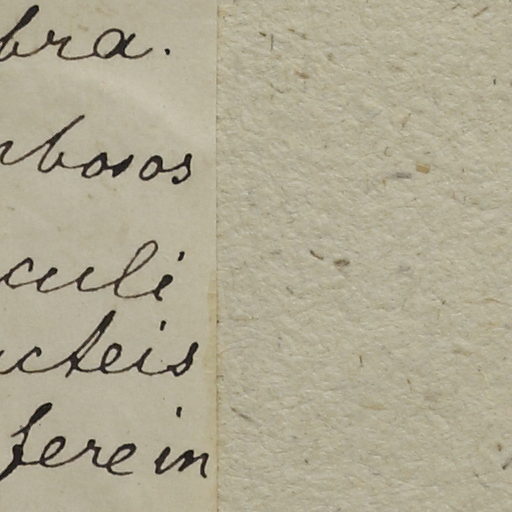 bra.
mbosos
culi
acteis
fere in